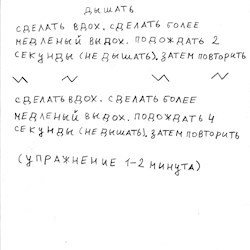 ДЫШАТЬ
СДЕЛАТЬ ВДОХ. СДЕЛАТЬ БОЛЕЕ
МЕДЛЕНЫЙ ВЫДОХ. ПОДОЖДАТЬ 2
СЕКУНДЫ (НЕ ДЫШАТЬ), ЗАТЕМ ПОВТОРИТЬ
СДЕЛАТЬ ВДОХ. СДЕЛАТЬ БОЛЕЕ
МЕДЛЕНЫЙ ВЫДОХ. ПОДОЖДАТЬ 4
СЕКУНДЫ (НЕ ДЫШАТЬ), ЗАТЕМ ПОВТОРИТЬ
(УПРАЖНЕНИЕ 1-2 МИНУТА)